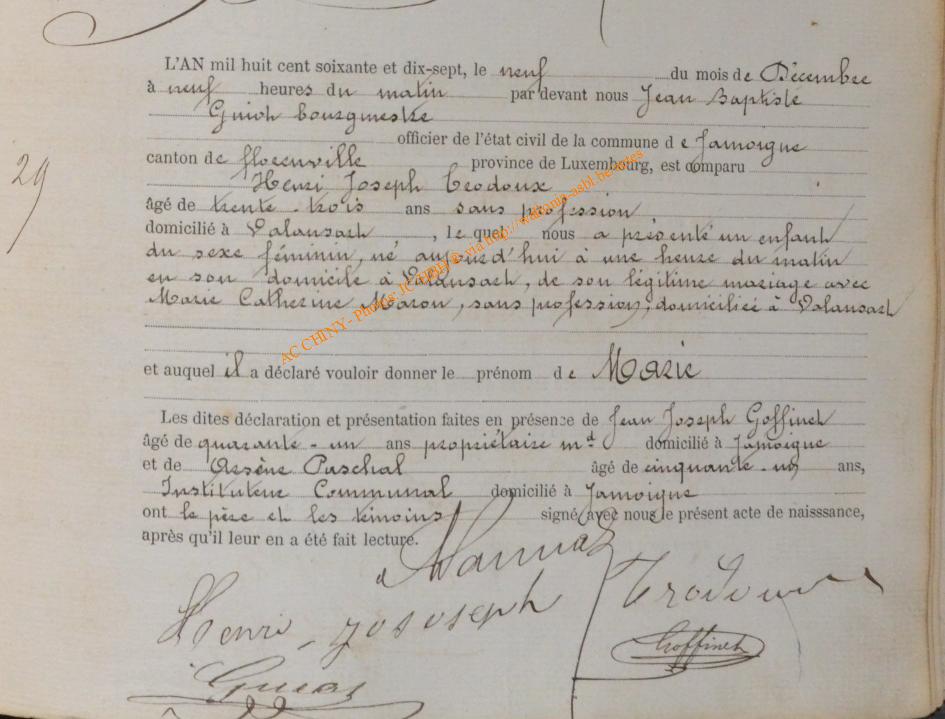 L'AN mil huit cent soixante et dix-sept, le neuf du mois de Décembre
à neuf heures du matin par devant nous Jean Baptiste
Guioh bourgmestre
officier de l'état civil de la commune de Jamoigne
canton de florenville province de Luxembourg, est comparu
29
Henri Joseph Crodoux
âgé de trente-trois ans sans profession
domicilié à Valansart, lequel nous a présenté un enfant
du sexe féminin, né aujourd'hui à une heure du matin
en son domicile à Valansart, de son légitime mariage avec
Marie Catherine Maron, sans profession, domiciliée à Valansart
AC CHINY - Photos: JC via http://
et auquel il a déclaré vouloir donner le prénom de Marie
Les dites déclaration et présentation faites en présence de Jean Joseph Goffinet
âgé de quarante-un ans propriétaire md domicilié à Jamoigne
et de Arsène Paschal âgé de cinquante-un ans,
Instituteur Communal domicilié à Jamoigne
ont le père et les témoins signé avec nous le présent acte de naisssance,
après qu'il leur en a été fait lecture.
Henri Jososeph Crodoux
Goffinet